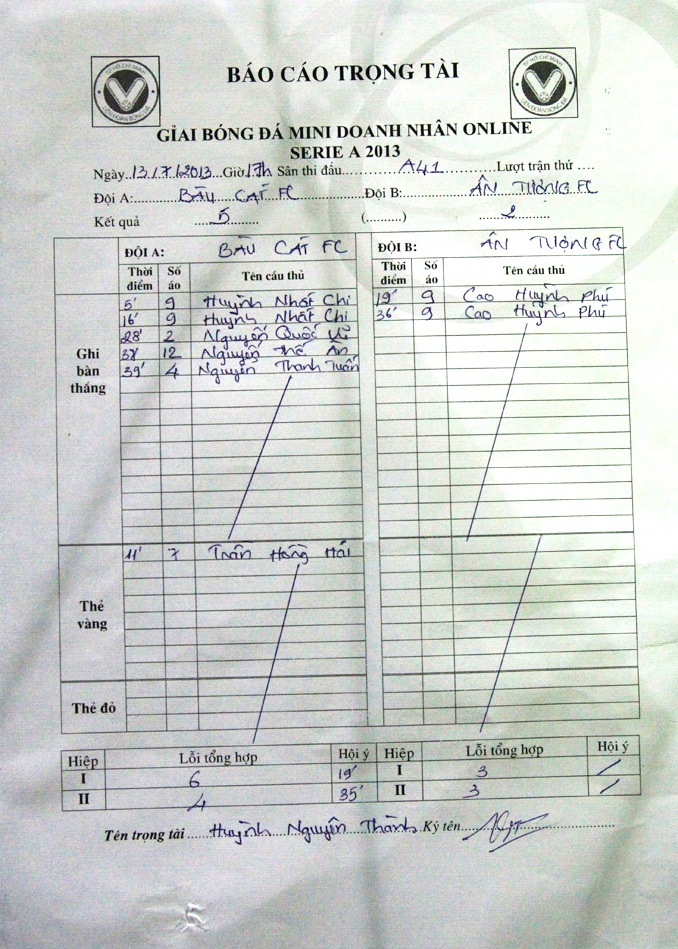 TP HỒ CHÍ MINH
LIÊN ĐOÀN BÓNG ĐÁ
BÁO CÁO TRỌNG TÀI
TP HỒ CHÍ MINH
LIÊN ĐOÀN BÓNG ĐÁ
GIẢI BÓNG ĐÁ MINI DOANH NHÂN ONLINE
SERIE A 2013
Ngày 13/7/2013 Giờ 17h Sân thi đấu A41 Lượt trận thứ ....
Đội A: BÀU CÁT FC Đội B: ẤN TƯỢNG FC
Kết quả 5 (..........) 2
ĐỘI A: BÀU CÁT FC ĐỘI B: ẤN TƯỢNG FC
Thời điểm Số áo Tên cầu thủ Thời điểm Số áo Tên cầu thủ
Ghi bàn thắng
5' 9 Huỳnh Nhất Chi 19' 9 Cao Huỳnh Phú
16' 9 Huỳnh Nhất Chi 36' 9 Cao Huỳnh Phú
28' 2 Nguyễn Quốc
12 Nguyễn Thế Ân
39' 4 Nguyễn Thanh Tuấn
Thẻ vàng
11' 7 Trần Hồng Hải
Thẻ đỏ
Hiệp Lỗi tổng hợp Hội ý Hiệp Lỗi tổng hợp Hội ý
I 6 19' I 3 /
II 4 35' II 3 /
Tên trọng tài Huỳnh Nguyễn Thành Ký tên